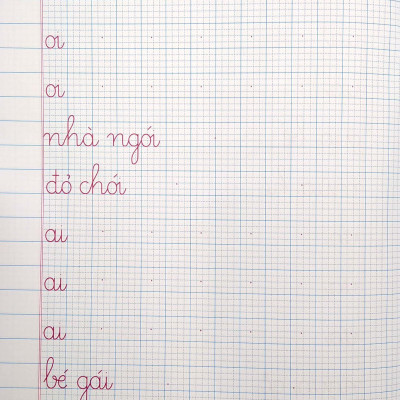 oi
oi
nhà ngói
đỏ chói
ai
ai
ai
bé gái